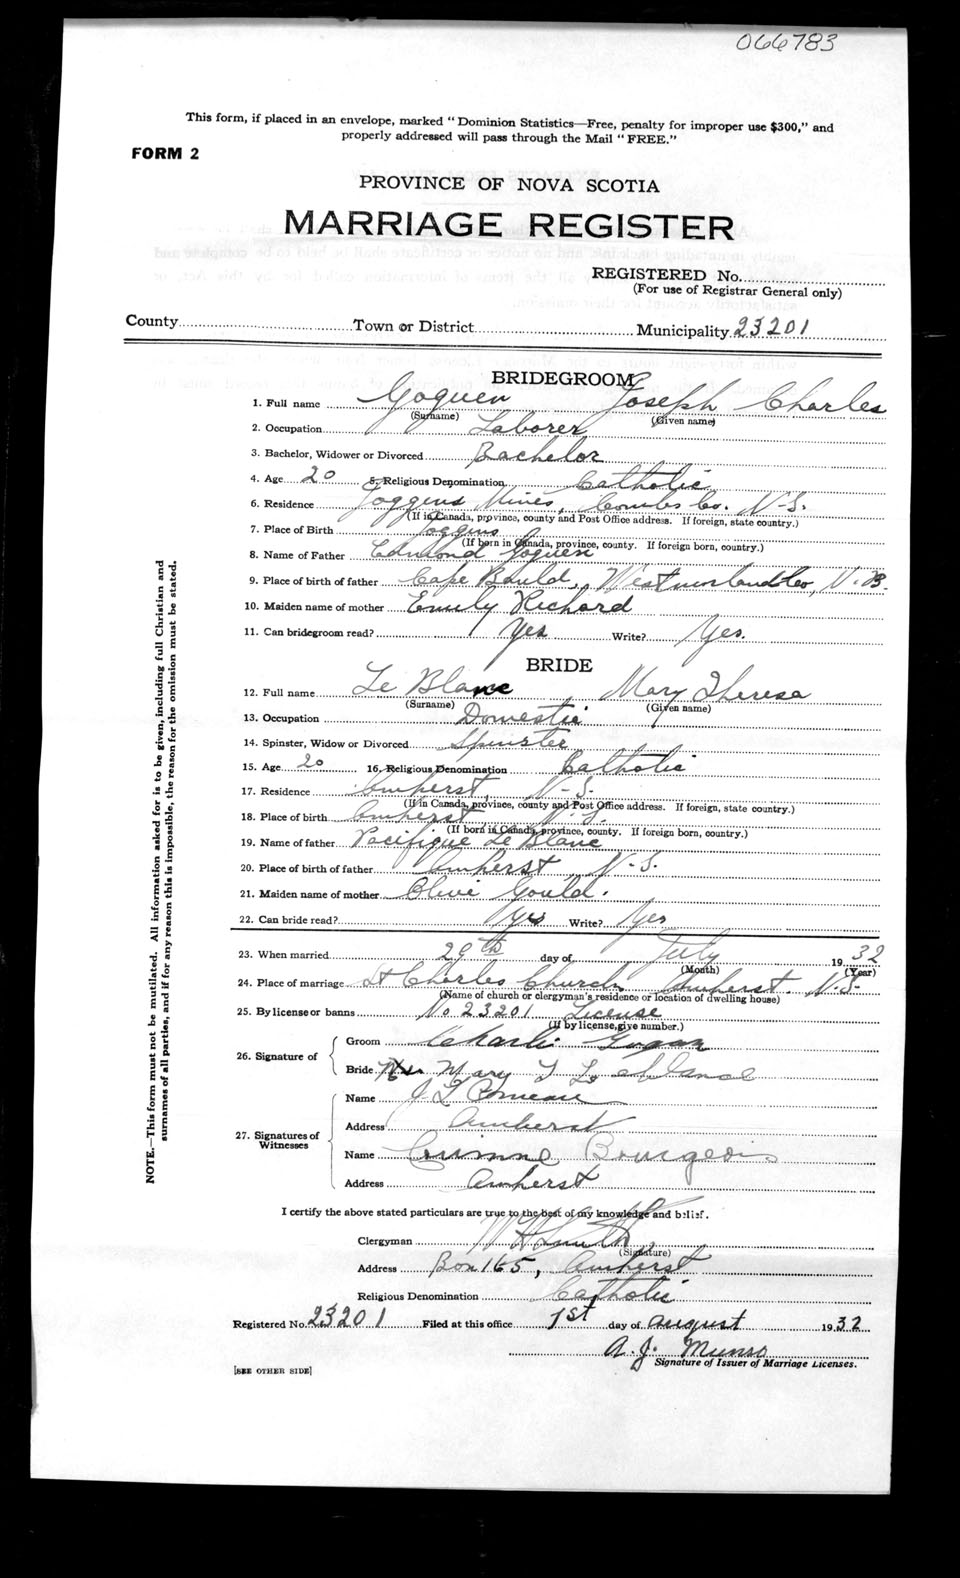 066783
This form, if placed in an envelope, marked "Dominion Statistics—Free, penalty for improper use $300," and
properly addressed will pass through the Mail "FREE."
FORM 2
PROVINCE OF NOVA SCOTIA
MARRIAGE REGISTER
REGISTERED No.
(For use of Registrar General only)
County Town or District Municipality 23201
BRIDEGROOM
1. Full name Goguen Joseph Charles
(Surname) (Given name)
2. Occupation Laborer
3. Bachelor, Widower or Divorced Bachelor
4. Age 20 5. Religious Denomination Catholic
6. Residence Joggins Mines, Cumb. Co. N-S.
(If in Canada, province, county and Post Office address. If foreign, state country.)
7. Place of Birth Joggins
(If born in Canada, province, county. If foreign born, country.)
8. Name of Father Edmond Goguen
9. Place of birth of father Cape Bauld, Westmorland Co, N.B.
10. Maiden name of mother Emily Richard
11. Can bridegroom read? Yes Write? Yes.
BRIDE
12. Full name Le Blanc, Mary Theresa
(Surname) (Given name)
13. Occupation Domestic
14. Spinster, Widow or Divorced Spinster
15. Age 20 16. Religious Denomination Catholic
17. Residence Amherst, N-S.
(If in Canada, province, county and Post Office address. If foreign, state country.)
18. Place of birth Amherst, N.S.
(If born in Canada, province, county. If foreign born, country.)
19. Name of father Pacifique Le Blanc
20. Place of birth of father Amherst N-S.
21. Maiden name of mother Olive Gould.
22. Can bride read? Yes Write? Yes
23. When married 29th day of July 1932
(Month) (Year)
24. Place of marriage St Charles Church, Amherst. N.S.
(Name of church or clergyman's residence or location of dwelling house)
25. By license or banns No 23201 License
(If by license, give number.)
26. Signature of
Groom Charlie
Bride Mary T LeBlanc
27. Signatures of
Witnesses
Name J L Comeau
Address Amherst
Name Corinne Bourgeois
Address Amherst
I certify the above stated particulars are true to the best of my knowledge and belief.
Clergyman Smith
(Signature)
Address Box 165, Amherst
Religious Denomination Catholic
Registered No. 23201 Filed at this office 1st day of august 1932
A. J. Munro
Signature of Issuer of Marriage Licenses.
[SEE OTHER SIDE]
NOTE.—This form must not be mutilated. All information asked for is to be given, including full Christian and
surnames of all parties, and if for any reason this is impossible, the reason for the omission must be stated.